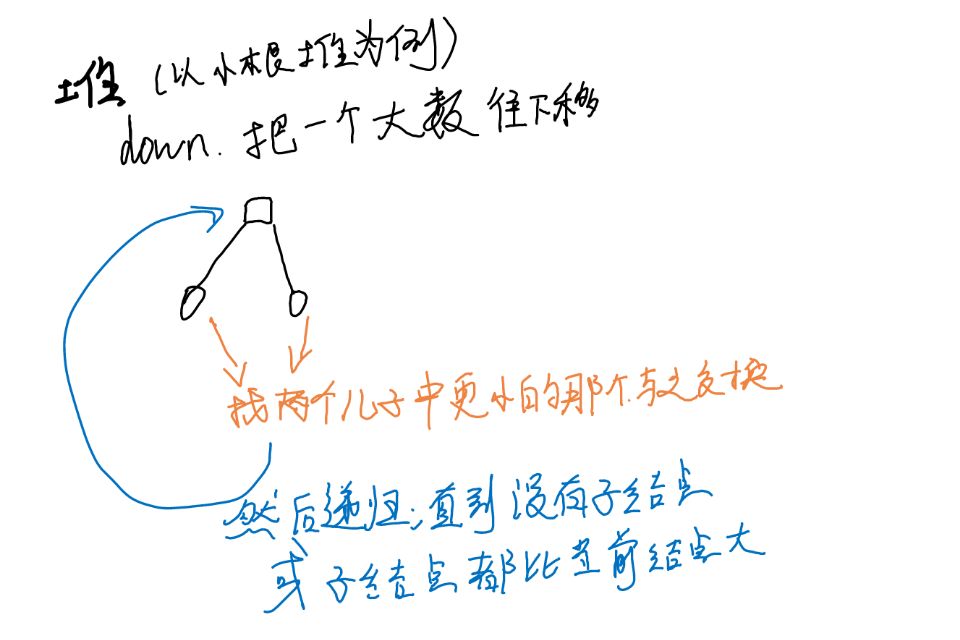 堆（以小根堆为例）
down. 把一个大数往下移
找两个儿子中更小的那个与之交换
然后递归，直到没有子结点
或子结点都比当前结点大